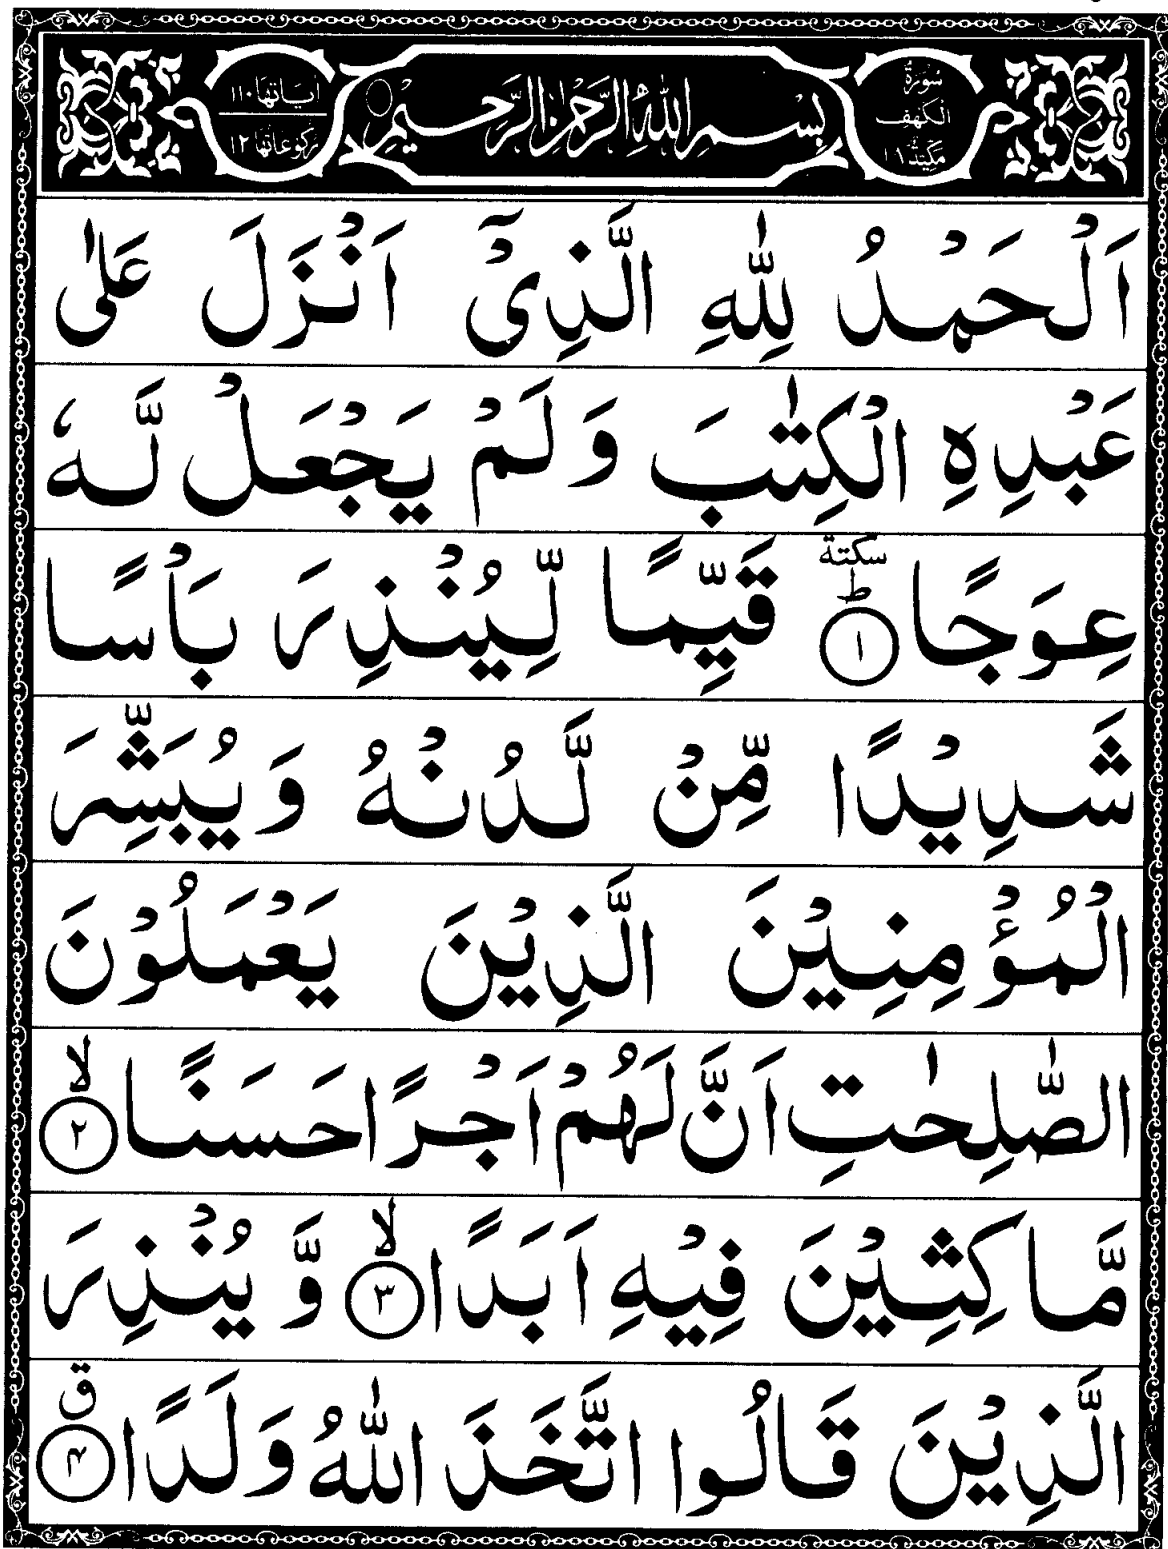 سُوْرَةُ
الْكَهْفِ
مَكِّيَّةٌ
بِسْمِ اللّٰهِ الرَّحْمٰنِ الرَّحِيْمِ
اٰيَاتُهَا ١١٠
رُكُوْعَاتُهَا ١٢
اَلْحَمْدُ لِلّٰهِ الَّذِیْۤ اَنْزَلَ عَلٰی
عَبْدِهِ الْكِتٰبَ وَ لَمْ یَجْعَلْ لَّهٗ
عِوَجًا سكتة ؕ ١ قَیِّمًا لِّیُنْذِرَ بَاْسًا
شَدِیْدًا مِّنْ لَّدُنْهُ وَ یُبَشِّرَ
الْمُؤْمِنِیْنَ الَّذِیْنَ یَعْمَلُوْنَ
الصّٰلِحٰتِ اَنَّ لَهُمْ اَجْرًا حَسَنًا ۙ ٢
مَّاكِثِیْنَ فِیْهِ اَبَدًا ۙ ٣ وَّ یُنْذِرَ
الَّذِیْنَ قَالُوا اتَّخَذَ اللّٰهُ وَلَدًا ق ۴